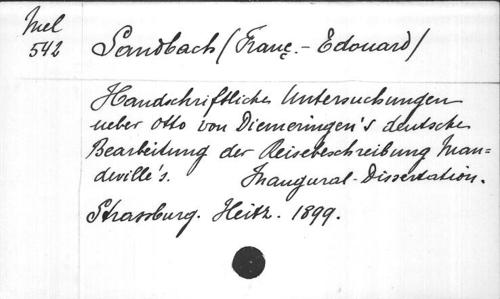 Mel
542
Sandbach (Franç.-Edouard)
Handschriftliche Untersuchungen
ueber Otto von Diemeringen's deutsche
Bearbeitung der Reisebeschreibung Man=
deville's. Inaugural-Dissertation.
Strassburg. Heitz. 1899.